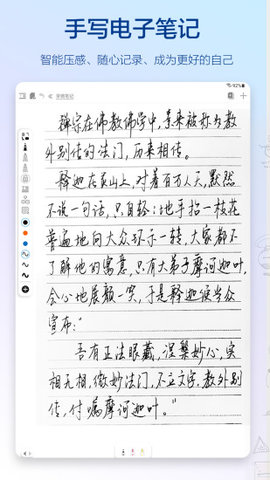 手写电子笔记
智能压感、随心记录、成为更好的自己
手稿笔记
禅宗在佛教佛学中,素来被称为教
外别传的法门,历来相传。
释迦在灵山上,对着百万人天,默然
不说一句话,只自轻轻地手拈一枝花
普遍地向大众环示一转,大家都不
了解他的寓意,只有大弟子摩诃迦叶,
会心地展颜一笑,于是释迦便当众
宣布:"
吾有正法眼藏,涅槃妙心,实
相无相,微妙法门,不立文字,教外别
传,付嘱摩诃迦叶。"